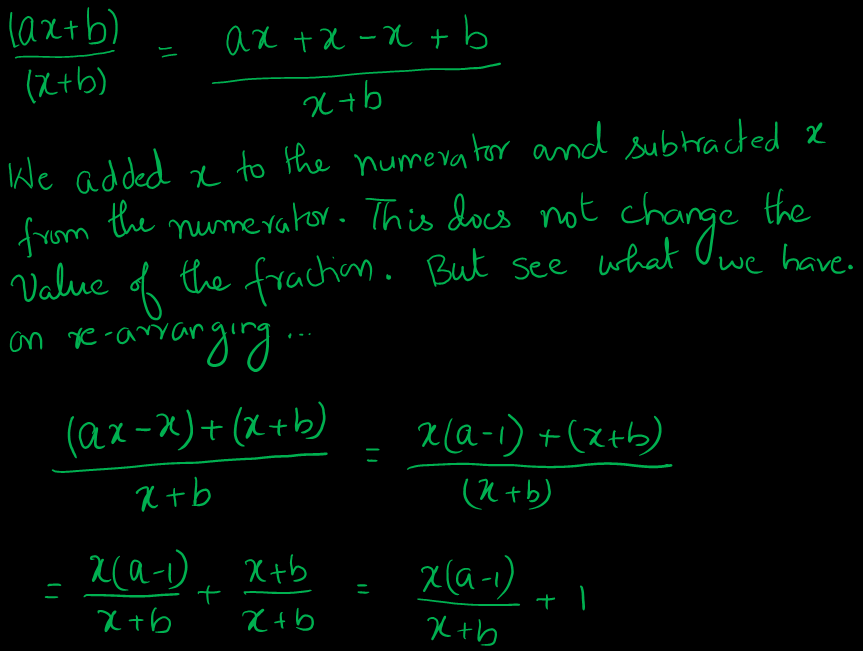 (ax+b)/(x+b) = (ax+x-x+b)/(x+b)
We added x to the numerator and subtracted x
from the numerator. This does not change the
Value of the fraction. But see what we have.
on re-arranging...
((ax-x)+(x+b))/(x+b) = (x(a-1)+(x+b))/((x+b))
= x(a-1)/(x+b) + (x+b)/(x+b) = x(a-1)/(x+b) + 1